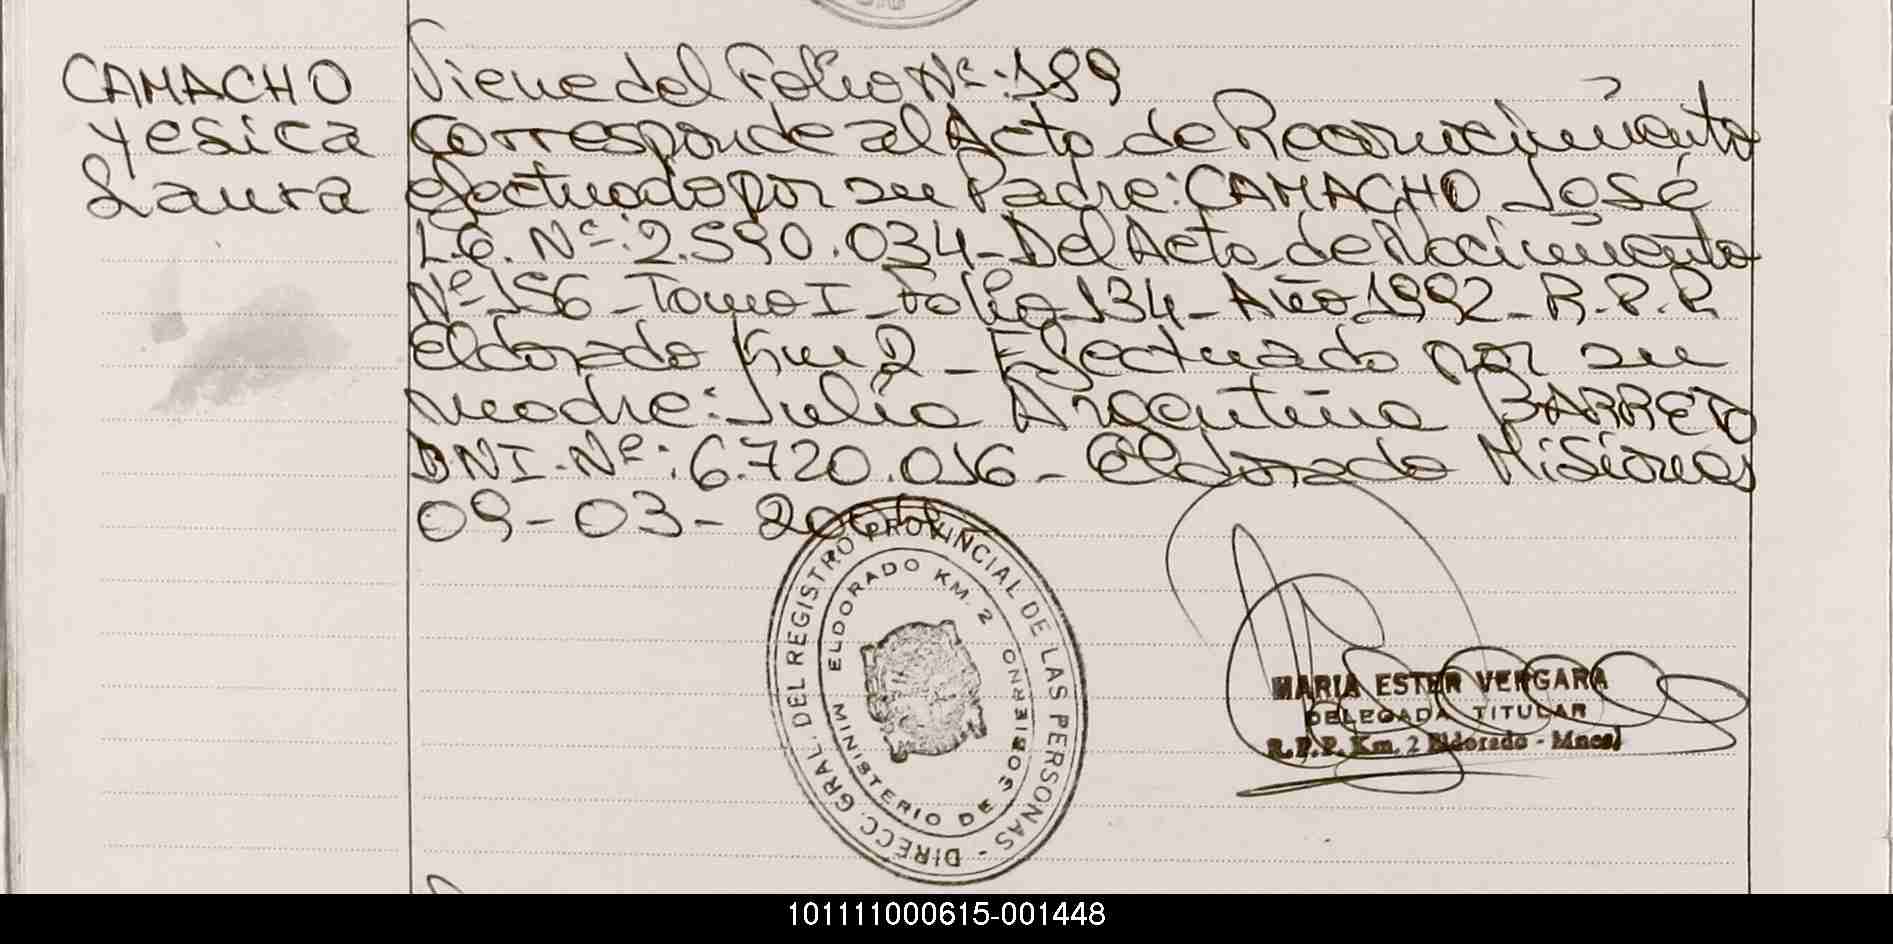 CAMACHO
Yesica
Laura
Viene del Folio Nº:189
Corresponde al Acto de Reconocimiento
efectuado por su Padre: CAMACHO José
L.E. Nº: 2.590.034 - Del Acto de Nacimiento
Nº 156 - Tomo I - Folio 134 - Año 1992 - R.P.P.
eldorado Km 2 - Efectuado por su
madre: Julia Argentina BARRETO
DNI. Nº: 6.720.016 - Eldorado Misiones
09-03-
DIRECC. GRAL. DEL REGISTRO PROVINCIAL DE LAS PERSONAS -
ELDORADO KM. 2
MINISTERIO DE GOBIERNO
MARIA ESTER VERGARA
DELEGADA TITULAR
R.P.P. Km. 2 Eldorado - Mnes.
101111000615-001448